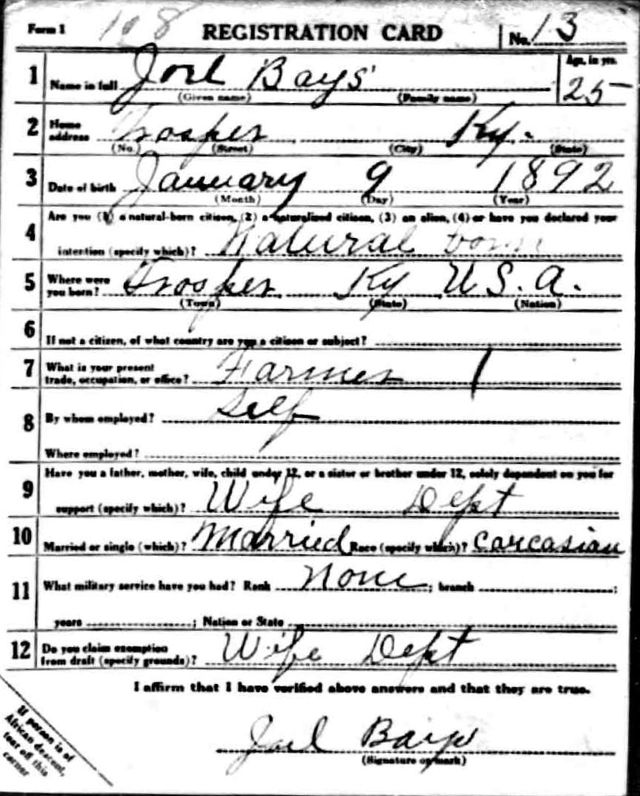 Form 1 108 REGISTRATION CARD No. 13
1 Name in full Joel Bays Age, in yrs. 25
(Given name) (Family name)
2 Home address Trosper Ky.
(No.) (Street) (City) (State)
3 Date of birth January 9 1892
(Month) (Day) (Year)
4 Are you (1) a natural-born citizen, (2) a naturalized citizen, (3) an alien, (4) or have you declared your
intention (specify which)? Natural born
5 Where were you born? Trosper Ky U.S.A.
(Town) (State) (Nation)
6 If not a citizen, of what country are you a citizen or subject?
7 What is your present trade, occupation, or office? Farmer
8 By whom employed? Self
Where employed?
9 Have you a father, mother, wife, child under 12, or a sister or brother under 12, solely dependent on you for
support (specify which)? Wife Dept
10 Married or single (which)? Married Race (specify which)? Carcasian
11 What military service have you had? Rank None ; branch ;
years ; Nation or State
12 Do you claim exemption from draft (specify grounds)? Wife Dept
I affirm that I have verified above answers and that they are true.
Joel Bays
(Signature or mark)
If person is of
African descent,
tear off this
corner